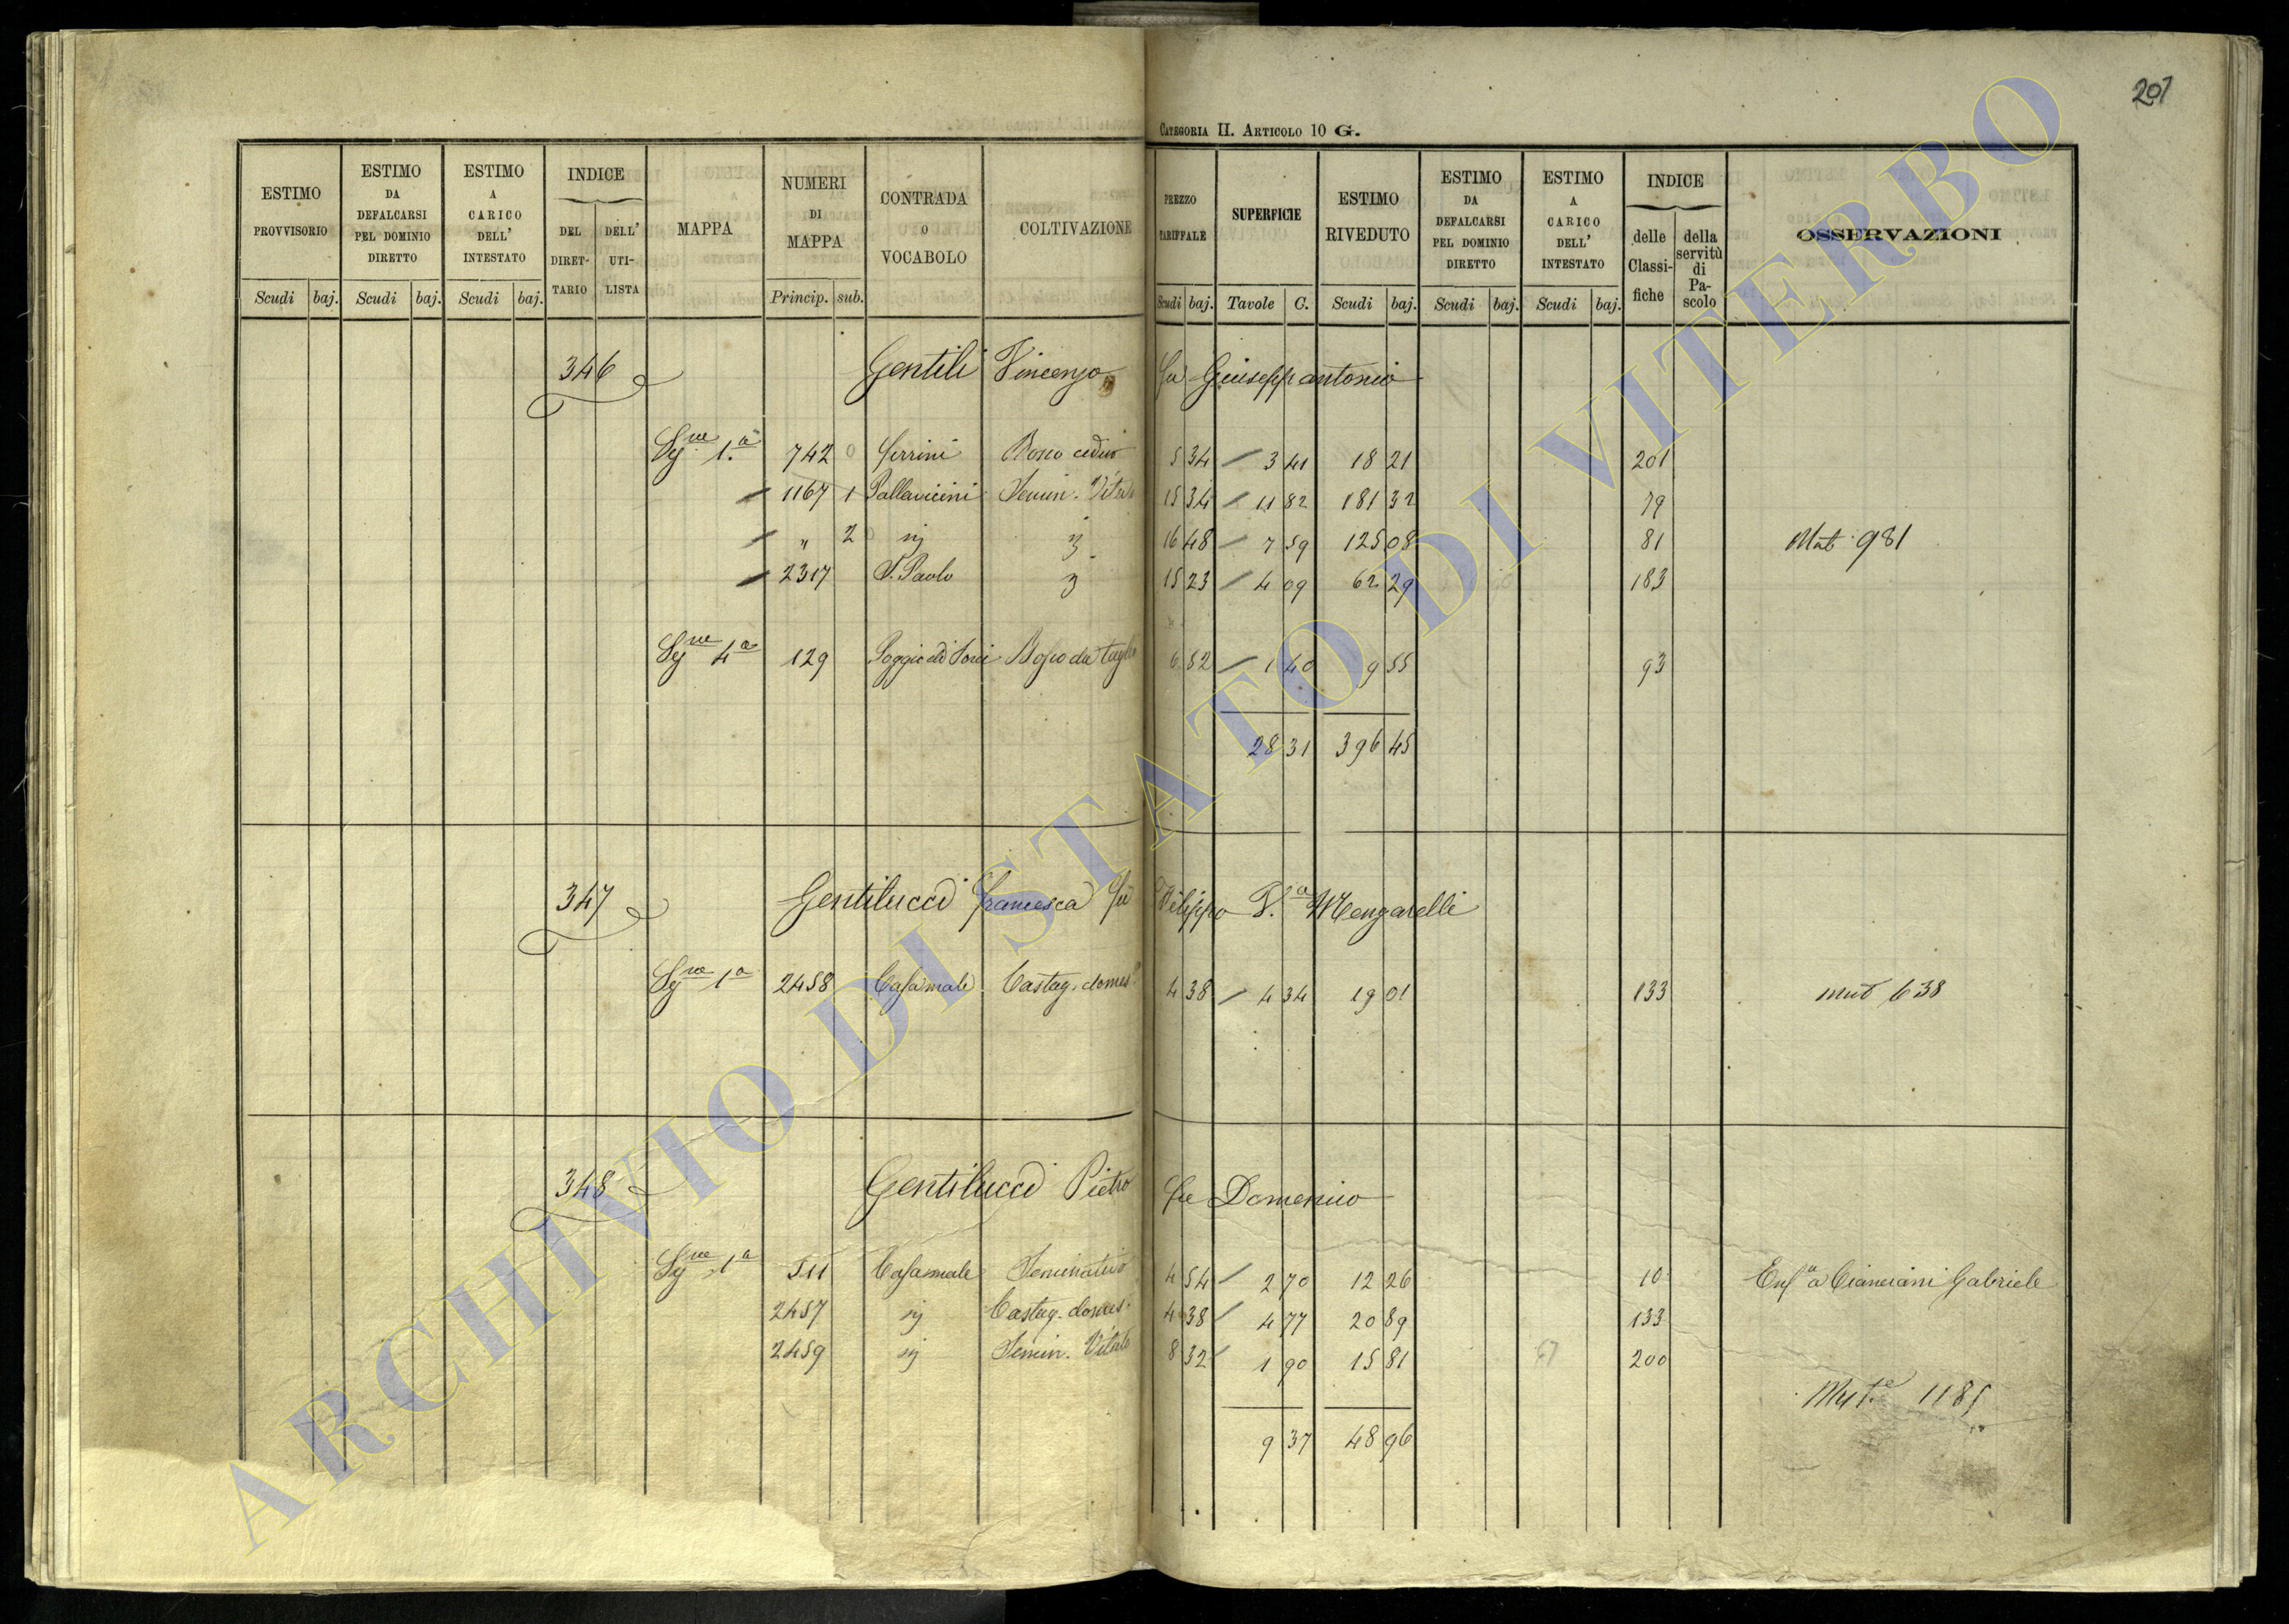 207
CATEGORIA II. ARTICOLO 10 G.
ESTIMO PROVVISORIO | ESTIMO DA DEFALCARSI PEL DOMINIO DIRETTO | ESTIMO A CARICO DELL' INTESTATO | INDICE DEL DIRET-TARIO | DELL' UTI-LISTA | MAPPA | NUMERI DI MAPPA | CONTRADA O VOCABOLO | COLTIVAZIONE | PREZZO TARIFFALE | SUPERFICIE | ESTIMO RIVEDUTO | ESTIMO DA DEFALCARSI PEL DOMINIO DIRETTO | ESTIMO A CARICO DELL' INTESTATO | INDICE delle Classi-fiche | della servitù di Pa-scolo | OSSERVAZIONI
Scudi baj. Scudi baj. Scudi baj. Princip. sub. Scudi baj. Tavole C. Scudi baj. Scudi baj. Scudi baj.
346 Gentili Vincenzo fu Giuseppantonio
Sy.ne 1.a 742 Ferrini Bosco ceduo 5 34 3 41 18 21 201
1167 1 Pallavicini Semin. Vitato 15 34 11 82 181 32 79
" 2 sij 16 48 7 59 125 08 81 Mut 981
2317 S. Paolo 15 23 4 09 62 29 183
Sy.ne 4a 129 Poggio di Bosco da taglio 6 82 1 40 9 55 93
28 31 396 45
347 Gentilucci Francesca fu Filippo V.a Mengarelli
Sy.ne 1a 2458 Casamale Castag. domes. 4 38 4 34 19 01 133 mut 638
348 Gentilucci Pietro fu Domenico
Sy.ne 1a 511 Casamale Seminativo 4 54 2 70 12 26 10 Enfa a Cianciani Gabriele
2457 sij Castag. domes. 4 38 4 77 20 89 133
2459 sij Semin. Vitato 8 32 1 90 15 81 67 200
Mut.e 1185
9 37 48 96
ARCHIVIO DI STATO DI VITERBO